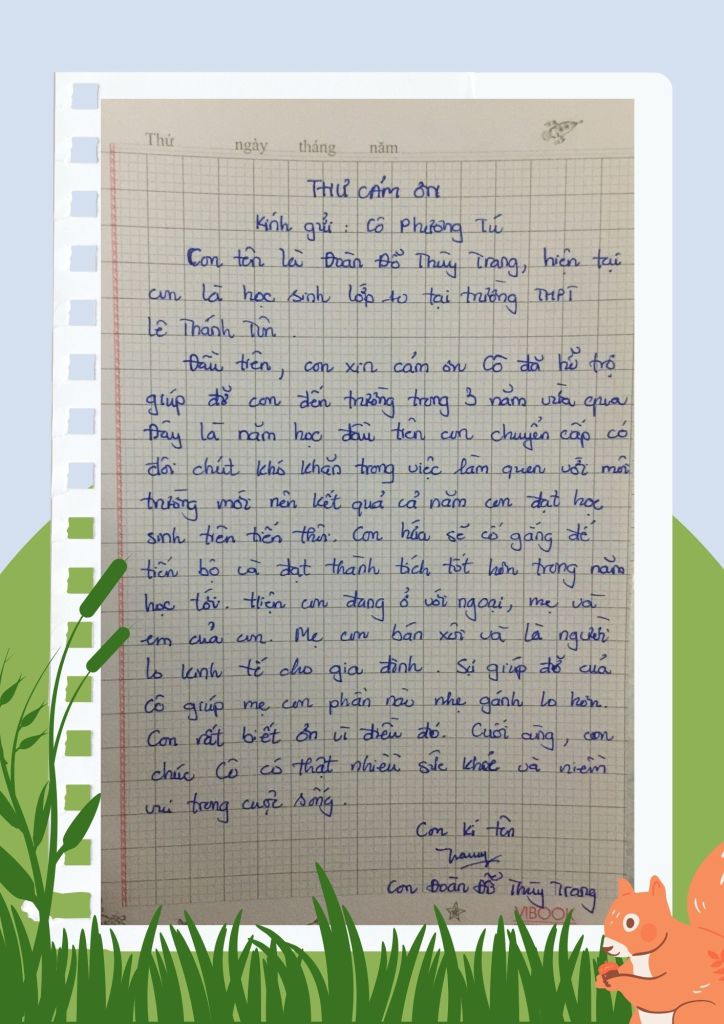 Thứ ngày tháng năm
THƯ CẢM ƠN
Kính gửi : Cô Phương Tú
Con tên là Đoàn Đỗ Thùy Trang, hiện tại
con là học sinh lớp 10 tại trường THPT
Lê Thánh Tôn .
Đầu tiên, con xin cảm ơn Cô đã hỗ trợ
giúp đỡ con đến trường trong 3 năm vừa qua
Đây là năm học đầu tiên con chuyển cấp có
đôi chút khó khăn trong việc làm quen với môi
trường mới nên kết quả cả năm con đạt học
sinh tiên tiến thôi. Con hứa sẽ cố gắng để
tiến bộ và đạt thành tích tốt hơn trong năm
học tới. Hiện con đang ở với ngoại, mẹ và
em của con. Mẹ con bán xôi và là người
lo kinh tế cho gia đình . Sự giúp đỡ của
cô giúp mẹ con phần nào nhẹ gánh lo hơn.
Con rất biết ơn vì điều đó. Cuối cùng, con
chúc Cô có thật nhiều sức khỏe và niềm
vui trong cuộc sống .
Con kí tên
Trang
Con Đoàn Đỗ Thùy Trang
VIBOOK